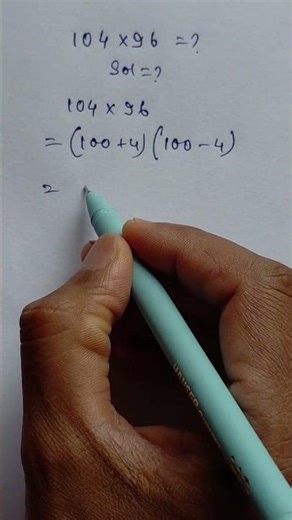 104 × 96 = ?
Sol = ?
104 × 96
= (100 + 4) (100 - 4)
=